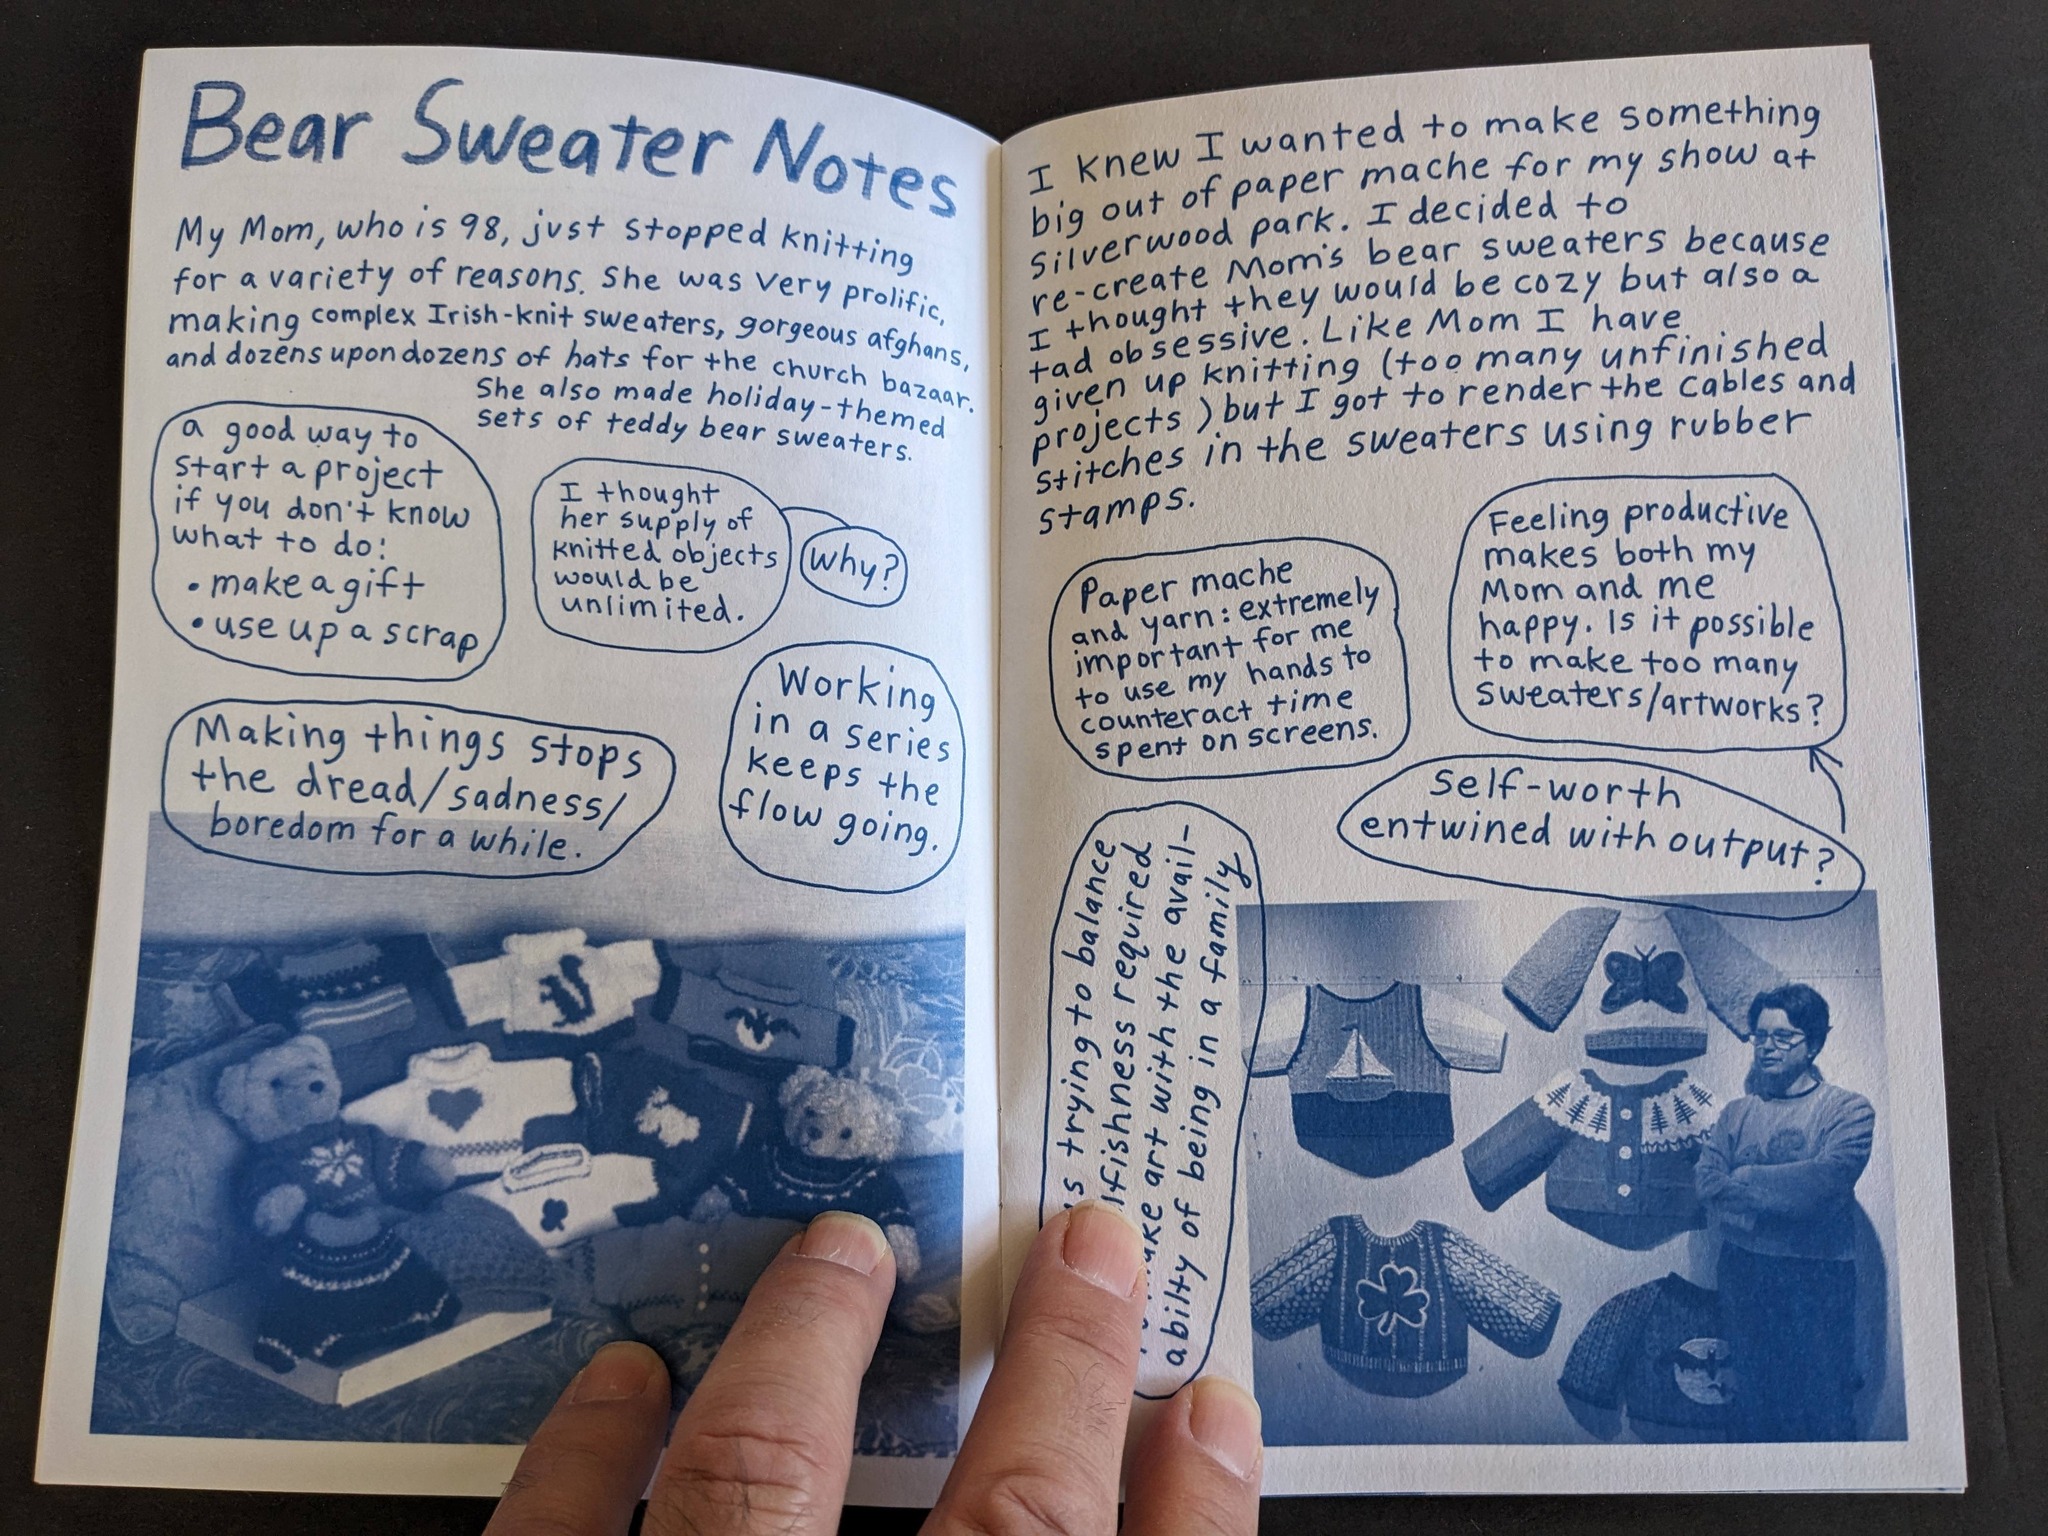 Bear Sweater Notes
My Mom, who is 98, just stopped knitting
for a variety of reasons. She was very prolific,
making complex Irish-knit sweaters, gorgeous afghans,
and dozens upon dozens of hats for the church bazaar.
She also made holiday-themed
sets of teddy bear sweaters.
a good way to
start a project
if you don't know
what to do:
• make a gift
• use up a scrap
I thought
her supply of
knitted objects
would be
unlimited.
why?
Working
in a series
keeps the
flow going.
Making things stops
the dread/sadness/
boredom for a while.
I knew I wanted to make something
big out of paper mache for my show at
Silverwood park. I decided to
re-create Mom's bear sweaters because
I thought they would be cozy but also a
tad obsessive. Like Mom I have
given up knitting (too many unfinished
projects) but I got to render the cables and
stitches in the sweaters using rubber
stamps.
Paper mache
and yarn: extremely
important for me
to use my hands to
counteract time
spent on screens.
Feeling productive
makes both my
Mom and me
happy. Is it possible
to make too many
sweaters/artworks?
Self-worth
entwined with output?
trying to balance
required
art with the avail-
abilty of being in a family